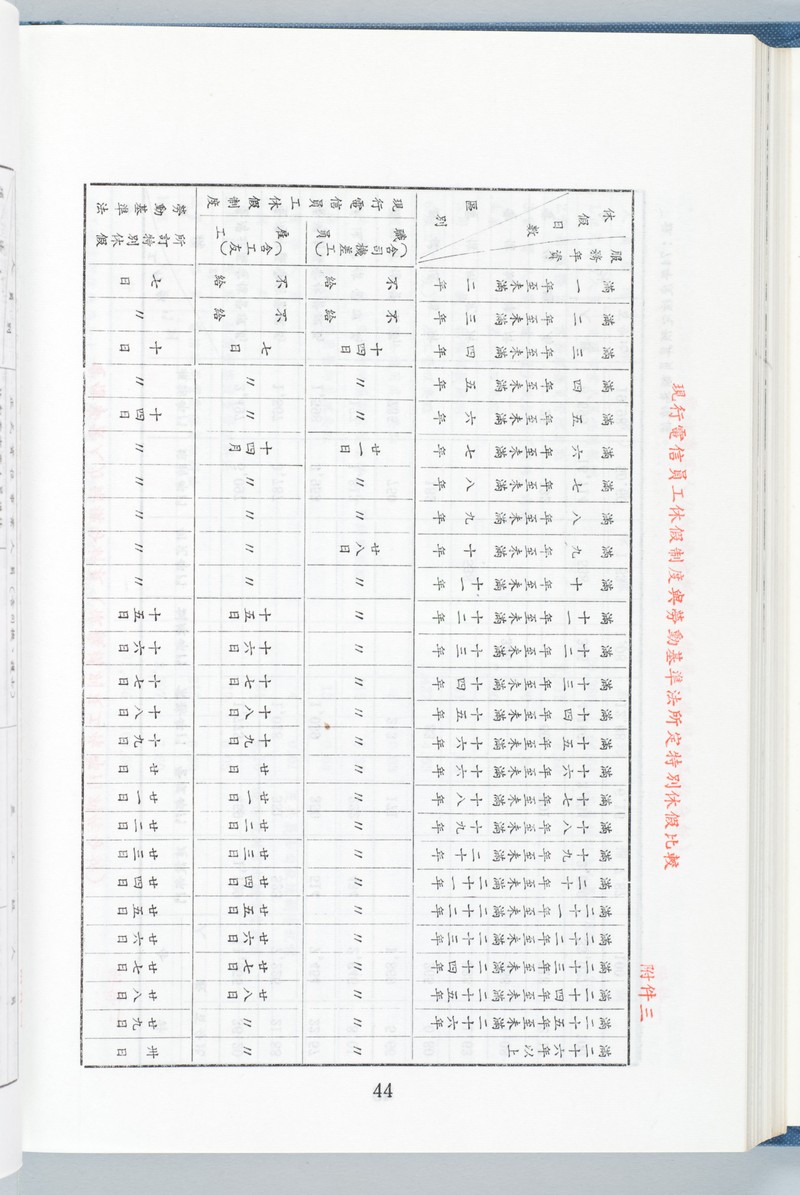 現行電信員工休假制度與勞動基準法所定特別休假比較
附件三
休假日數
區別
服務年資
現行電信員工休假制度
職員(含司機差工)
雇工(含工友)
勞動基準法所訂特別休假
滿一年至未滿二年 不給 不給 七日
滿二年至未滿三年 不給 不給 〃
滿三年至未滿四年 十四日 七日 十日
滿四年至未滿五年 〃 〃 〃
滿五年至未滿六年 〃 〃 十四日
滿六年至未滿七年 廿一日 十四月 〃
滿七年至未滿八年 〃 〃 〃
滿八年至未滿九年 〃 〃 〃
滿九年至未滿十年 廿八日 〃 〃
滿十年至未滿十一年 〃 〃 〃
滿十一年至未滿十二年 〃 十五日 十五日
滿十二年至未滿十三年 〃 十六日 十六日
滿十三年至未滿十四年 〃 十七日 十七日
滿十四年至未滿十五年 〃 十八日 十八日
滿十五年至未滿十六年 〃 十九日 十九日
滿十六年至未滿十六年 〃 廿日 廿日
滿十七年至未滿十八年 〃 廿一日 廿一日
滿十八年至未滿十九年 〃 廿二日 廿二日
滿十九年至未滿二十年 〃 廿三日 廿三日
滿二十年至未滿二十一年 〃 廿四日 廿四日
滿二十一年至未滿二十二年 〃 廿五日 廿五日
滿二十二年至未滿二十三年 〃 廿六日 廿六日
滿二十三年至未滿二十四年 〃 廿七日 廿七日
滿二十四年至未滿二十五年 〃 廿八日 廿八日
滿二十五年至未滿二十六年 〃 〃 廿九日
滿二十六年以上 〃 〃 卅日
44